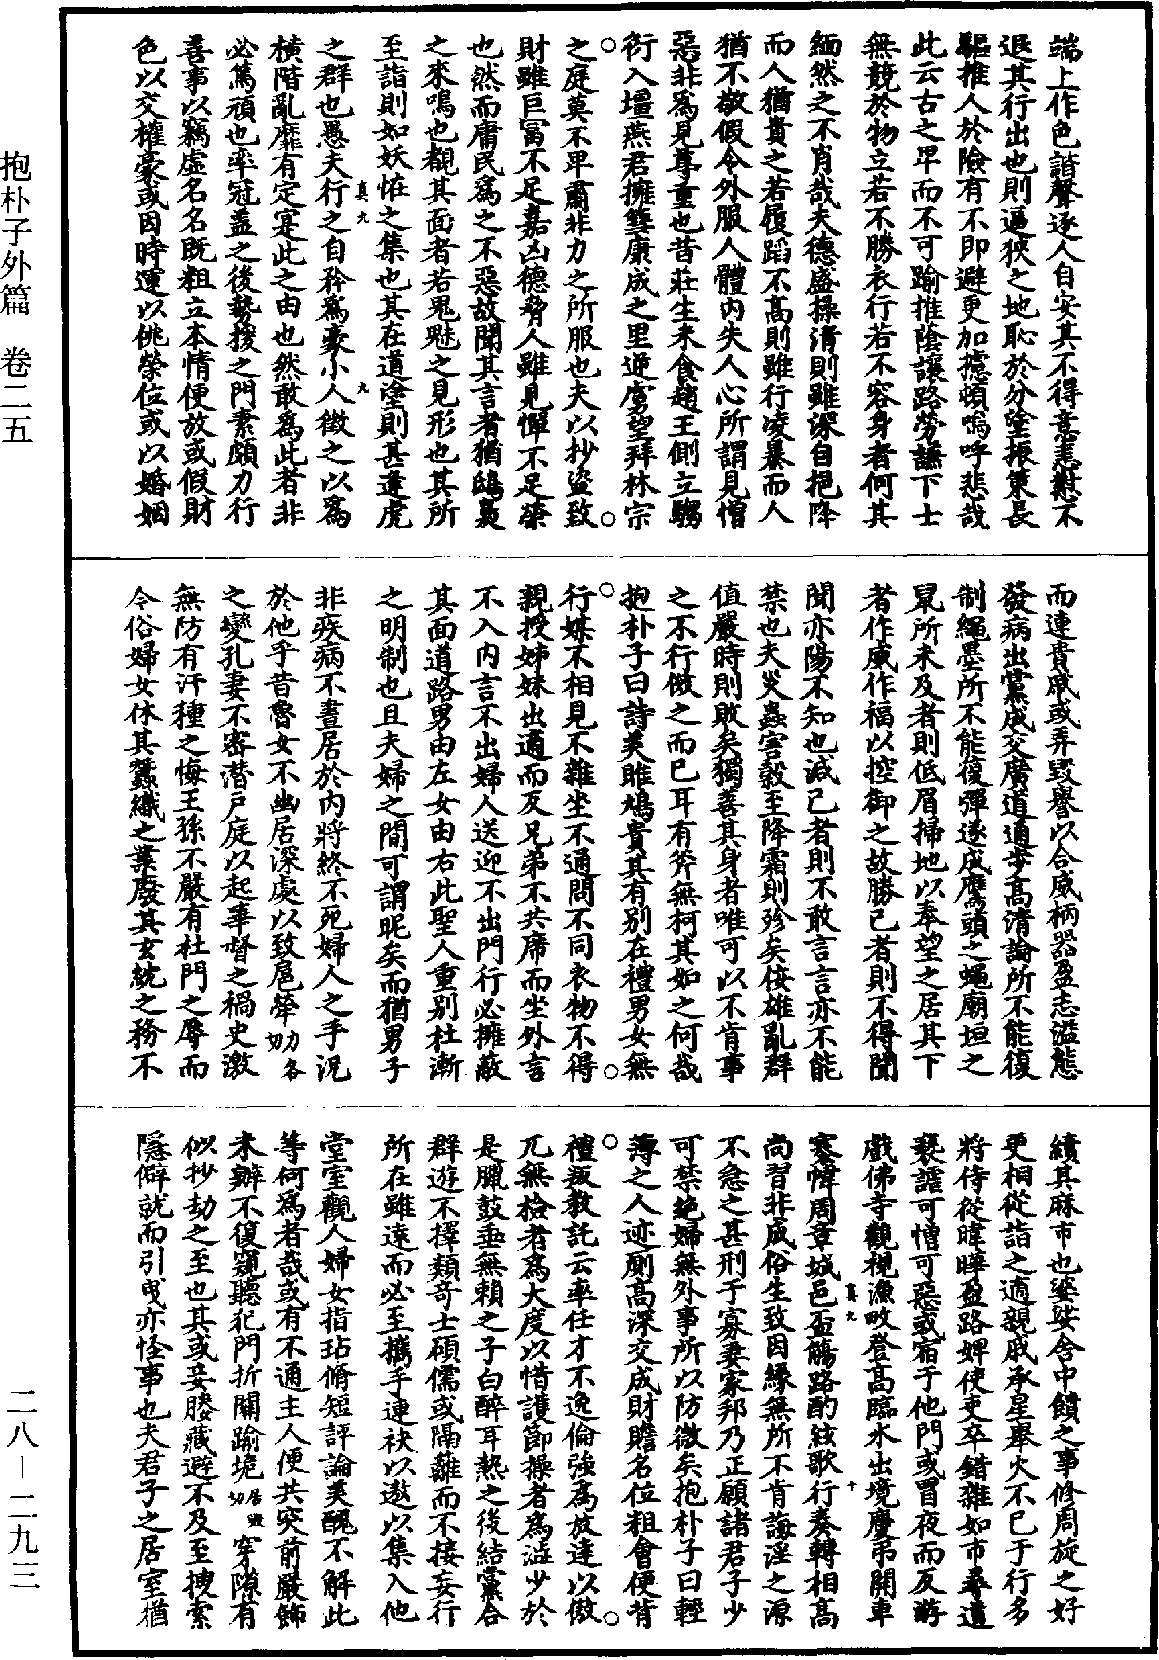 端上作色諧聲逐人自安其不得意恚懟不
退其行出也則逼狹之地恥於分塗振策長
驅推人於險有不即避更加攄頓嗚呼悲哉
此云古之卑而不可踰推陰讓路勞謙下士
無競於物立若不勝衣行若不容身者何其
緬然之不肖哉夫德盛操清則雖深自挹降
而人猶貴之若履蹈不高則雖行凌暴而人
猶不敬假令外服人體內失人心所謂見憎
惡非爲見尊重也昔莊生未食趙王側立騶
衍入壃燕君擁篲康成之里逆虜望拜林宗
之庭莫不卑肅非力之所服也夫以抄盜致
財雖巨富不足嘉凶德脅人雖見憚不足榮
也然而庸民爲之不惡故聞其言者猶鴟梟
之來鳴也覩其面者若鬼魅之見形也其所
至詣則如妖恠之集也其在道塗則甚逢虎
之群也愚夫行之自矜爲豪小人徵之以爲
橫階亂靡有定寔此之由也然敢爲此者非
必篤頑也率冠蓋之後勢援之門素頗力行
善事以竊虛名名既粗立本情便放或假財
色以交權豪或因時運以佻榮位或以婚姻
而連貴戚或弄毀譽以合威柄器盈志溢態
發病出黨成交廣道通步高清論所不能復
制繩墨所不能復彈遂成鷹頭之蠅廟垣之
鼠所未及者則低眉掃地以奉望之居其下
者作威作福以控御之故勝己者則不得聞
聞亦陽不知也減己者則不敢言言亦不能
禁也夫災蟲害穀至降霜則殄矣佞雄亂群
值嚴時則敗矣獨善其身者唯可以不肯事
之不行倣之而已耳有斧無柯其如之何哉
抱朴子曰詩美雎鳩貴其有別在禮男女無
行媒不相見不雜坐不通問不同衣物不得
親授姊妹出適而反兄弟不共席而坐外言
不入內言不出婦人送迎不出門行必擁蔽
其面道路男由左女由右此聖人重別杜漸
之明制也且夫婦之間可謂昵矣而猶男子
非疾病不晝居於內將終不死婦人之手況
於他乎昔魯女不幽居深處以致扈犖力各切
之變孔妻不密潛戶庭以起華督之禍史激
無防有汗種之悔王孫不嚴有杜門之辱而
令俗婦女休其蠶織之業廢其玄紞之務不
績其麻市也婆娑舍中饋之事修周旋之好
更相從詣之適親戚承星舉火不已于行多
將侍從暐曄盈路婢使吏卒錯雜如市尋道
褻謔可憎可惡或宿于他門或冒夜而反游
戲佛寺觀視漁畋登高臨水出境慶弔開車
褰幃周章城邑盃觴路酌絃歌行奏轉相高
尚習非成俗生致因緣無所不肯誨淫之源
不急之甚刑于寡妻家邦乃正願諸君子少
可禁絕婦無外事所以防微矣抱朴子曰輕
薄之人迹厠高深交成財贍名位粗會便背
禮叛教託云率任才不逸倫強爲放達以傲
兀無檢者爲大度以惜護節操者爲澁少於
是臘鼓垂無賴之子白醉耳熱之後結黨合
群遊不擇類奇士碩儒或隔籬而不接妄行
所在雖遠而必至攜手連袂以遨以集入他
堂室觀人婦女指玷脩短評論美醜不解此
等何爲者哉或有不通主人便共突前嚴飾
未辦不復窺聽犯門折關踰垝居毀切穿隙有
似抄劫之至也其或妾媵藏避不及至搜索
隱僻就而引曳亦怪事也夫君子之居室猶
真九
九
真九
十
抱朴子外篇　卷二五
二八－二九三